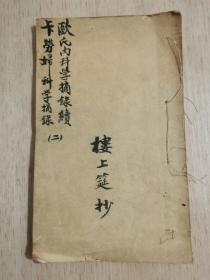 歐氏內科學摘錄續
卡勞婦科学摘錄
(二)
樓上筵抄